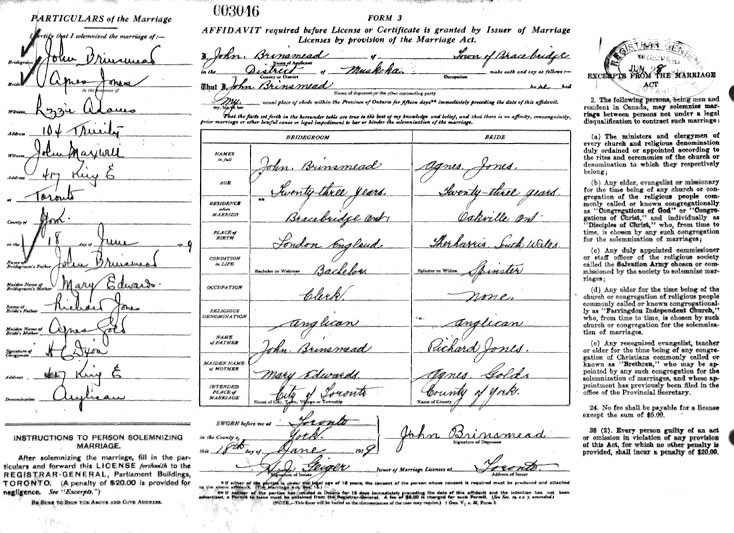 003046
PARTICULARS of the Marriage
I certify that I solemnized the marriage of:—
Bridegroom John Brinsmead
Bride Agnes Jones
in the presence of
Witness Lizzie Adams
Address 104 Trinity
Witness John Maxwell
Address 417 King E
at Toronto
County of York
on the 18 day of June 1919
Name of Bridegroom's Father John Brinsmead
Maiden Name of Bridegroom's Mother Mary Edwards
Name of Bride's Father Richard Jones
Maiden Name of Bride's Mother Agnes Gold
Signature of Clergyman H C Dixon
Address 417 King E
Denomination Anglican
INSTRUCTIONS TO PERSON SOLEMNIZING
MARRIAGE.
After solemnizing the marriage, fill in the par-
ticulars and forward this LICENSE forthwith to the
REGISTRAR-GENERAL, Parliament Buildings,
TORONTO. (A penalty of $20.00 is provided for
negligence. See "Excerpts.")
BE SURE TO SIGN THE ABOVE AND GIVE ADDRESS.
FORM 3
AFFIDAVIT required before License or Certificate is granted by Issuer of Marriage
Licenses by provision of the Marriage Act.
I, John Brinsmead of Town of Bracebridge
Name of Applicant
in the District of Muskoka make oath and say as follows:—
County or District Occupation
That I John Brinsmead had
Name of deponent or the other contracting party
my usual place of abode within the Province of Ontario for fifteen days immediately preceding the date of this affidavit.
That the facts set forth in the hereunder table are true to the best of my knowledge and belief, and that there is no affinity, consanguinity,
prior marriage or other lawful cause or legal impediment to bar or hinder the solemnization of the marriage.
BRIDEGROOM BRIDE
NAMES in full John Brinsmead Agnes Jones.
AGE Twenty-three years. Twenty-three years.
RESIDENCE when MARRIED Bracebridge Ont. Oakville Ont
PLACE OF BIRTH London England South Wales.
CONDITION IN LIFE Bachelor or Widower Bachelor Spinster or Widow Spinster
OCCUPATION Clerk. None.
RELIGIOUS DENOMINATION Anglican Anglican
NAME OF FATHER John Brinsmead Richard Jones.
MAIDEN NAME OF MOTHER Mary Edwards Agnes Gold
INTENDED PLACE OF MARRIAGE City of Toronto County of York.
Name of City, Town, Village or Township Name of County
SWORN before me at Toronto
in the County of York
this 18th day of June 1919 John Brinsmead
Signature of Deponent
Issuer of Marriage Licenses at Toronto
Signature of Issuer Address of Issuer
REGISTRAR GENERAL
RECEIVED
JUN 28
EXCERPTS FROM THE MARRIAGE
ACT
2. The following persons, being men and
resident in Canada, may solemnize mar-
riage between persons not under a legal
disqualification to contract such marriage:
(a) The ministers and clergymen of
every church and religious denomination
duly ordained or appointed according to
the rites and ceremonies of the church or
denomination to which they respectively
belong;
(b) Any elder, evangelist or missionary
for the time being of any church or con-
gregation of the religious people com-
monly called or known congregationally
as "Congregations of God" or "Congre-
gations of Christ," and individually as
"Disciples of Christ," who, from time to
time, is chosen by any such congregation
for the solemnization of marriages;
(c) Any duly appointed commissioner
or staff officer of the religious society
called the Salvation Army chosen or com-
missioned by the society to solemnize mar-
riages;
(d) Any elder for the time being of the
church or congregation of religious people
commonly called or known congregational-
ly as "Farringdon Independent Church,"
who, from time to time, is chosen by such
church or congregation for the solemniza-
tion of marriages;
(e) Any recognized evangelist, teacher
or elder for the time being of any con-
gregation of Christians commonly called or
known as "Brethren," who may be ap-
pointed by any such congregation for the
solemnization of marriages, and whose ap-
pointment has previously been filed in the
office of the Provincial Secretary.
24. No fee shall be payable for a license
except the sum of $5.00.
38 (2). Every person guilty of an act
or omission in violation of any provision
of this Act, for which no other penalty is
provided, shall incur a penalty of $20.00.